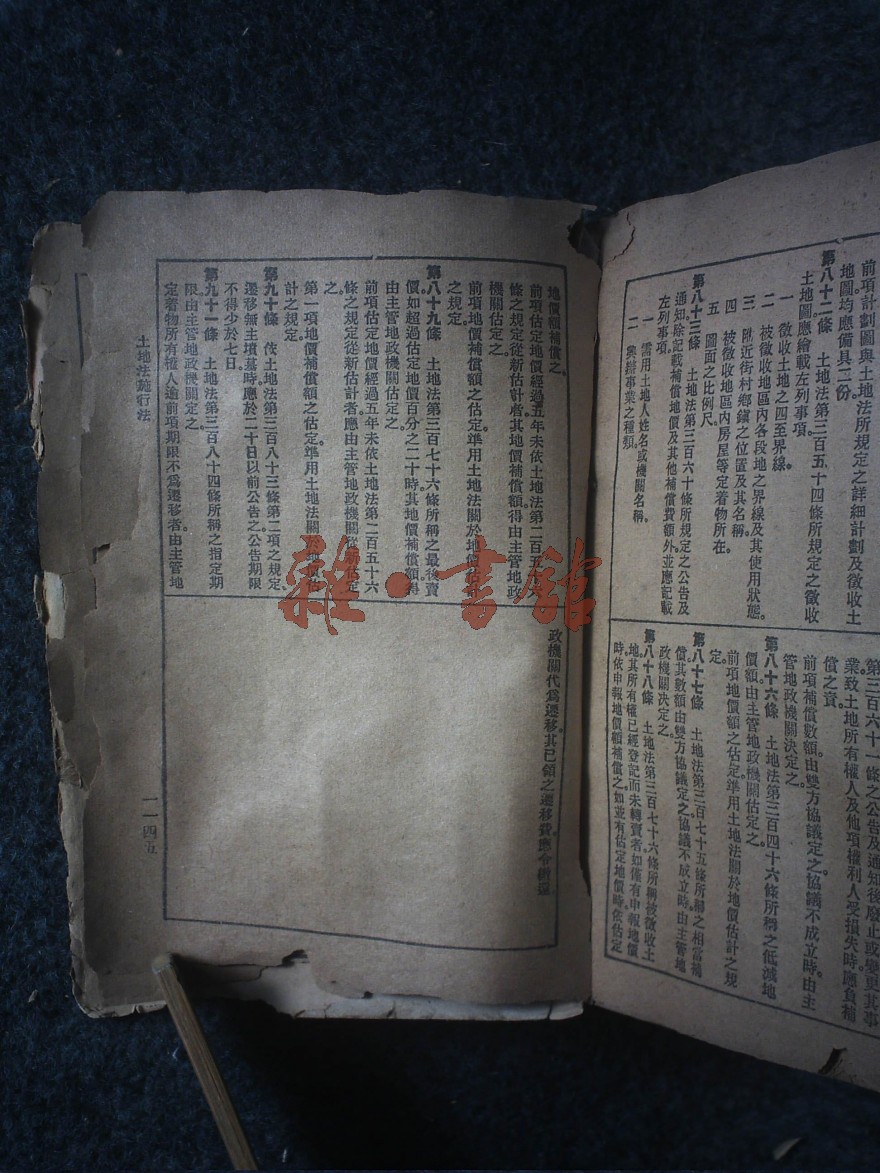 前項計劃圖與土地法所規定之詳細計劃及徵收土
地圖均應備具三份。
第八十二條　土地法第三百五十四條所規定之徵收
土地圖應繪載左列事項。
一　徵收土地之四至界線。
二　被徵收地區內各段地之界線及其使用狀態。
三　附近街村鄉鎮之位置及其名稱。
四　被徵收地區內房屋等定着物所在。
五　圖面之比例尺。
第八十三條　土地法第三百六十條所規定之公告及
通知除記載補償地價及其他補償費額外並應記載
左列事項。
一　需用土地人姓名或機關名稱。
二　興辦事業之種類
第三百六十一條之公告及通知後廢止或變更其事
業致土地所有權人及他項權利人受損失時應負補
償之責。
前項補償數額由雙方協議定之協議不成立時由主
管地政機關決定之。
第八十六條　土地法第三百四十六條所稱之低減地
價額由主管地政機關估定之。
前項地價額之估定準用土地法關於地價估計之規
定。
第八十七條　土地法第三百七十五條所稱之相當補
償其數額由雙方協議定之協議不成立時由主管地
政機關决定之。
第八十八條　土地法第三百七十六條所稱被徵收土
地其所有權已經登記而未轉賣者如僅有申報地價
時依申報地價額補償之如並有估定地價時依估定
地價額補償之。
前項估定地價經過五年未依土地法第二百五十六
條之規定從新估計者其地價補償額得由主管地政
機關估定之。
前項地價補償額之估定準用土地法關於地價估計
之規定。
第八十九條　土地法第三百七十六條所稱之最後賣
價如超過估定地價百分之二十時其地價補償額得
由主管地政機關估定之。
前項估定地價經過五年未依土地法第二百五十六
條之規定從新估計者應由主管地政機關從新估定
之。
第一項地價補償額之估定準用土地法關於地價估
計之規定。
第九十條　依土地法第三百八十三條第二項之規定
遷移無主墳墓時應於二十日以前公告之公告期限
不得少於七日。
第九十一條　土地法第三百八十四條所稱之指定期
限由主管地政機關定之。
定着物所有權人逾前項期限不爲遷移者由主管地
政機關代爲遷移其已領之遷移費應令繳還
土地法施行法
一一四五
雜·書舘